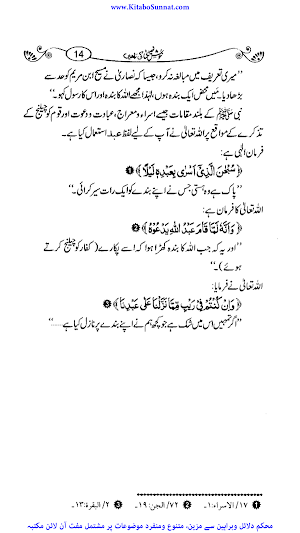 www.KitaboSunnat.com
14
’’میری تعریف میں مبالغہ نہ کرو، جیسا کہ نصاریٰ نے مسیح ابن مریم کو حد سے
بڑھا دیا۔ میں محض ایک بندہ ہوں، لہٰذا مجھے اللہ کا بندہ اور اس کا رسول کہو۔‘‘
نبی ﷺ کے بلند مقامات جیسے اسراء و معراج، عبادت و دعوت اور قوم کو چیلنج کے
تذکرے کے مواقع پر اللہ تعالیٰ نے آپ کے لیے لفظ عبد استعمال کیا ہے۔
فرمان الٰہی ہے:
﴿سُبْحٰنَ الَّذِیْۤ اَسْرٰی بِعَبْدِهٖ لَیْلًا﴾ ❶
’’پاک ہے وہ ہستی جس نے اپنے بندے کو ایک رات سیر کرائی۔‘‘
اللہ تعالیٰ کا فرمان ہے:
﴿وَاَنَّهٗ لَمَّا قَامَ عَبْدُ اللّٰهِ یَدْعُوْهُ﴾ ❷
’’اور یہ کہ جب اللہ کا بندہ کھڑا ہوا کہ اسے پکارے (کفار کو چیلنج کرتے
ہوئے)۔‘‘
اللہ تعالیٰ نے فرمایا:
﴿وَاِنْ كُنْتُمْ فِیْ رَیْبٍ مِّمَّا نَزَّلْنَا عَلٰی عَبْدِنَا﴾ ❸
’’اگر تمہیں اس میں شک ہے جو کچھ ہم نے اپنے بندے پر نازل کیا ہے ......‘‘
❶ ۱۷/ الاسراء: ۱۔ ❷ ۷۲/ الجن: ۱۹۔ ❸ ۲/ البقرة: ۱۳۔
محکم دلائل وبراہین سے مزین، متنوع ومنفرد موضوعات پر مشتمل مفت آن لائن مکتبہ